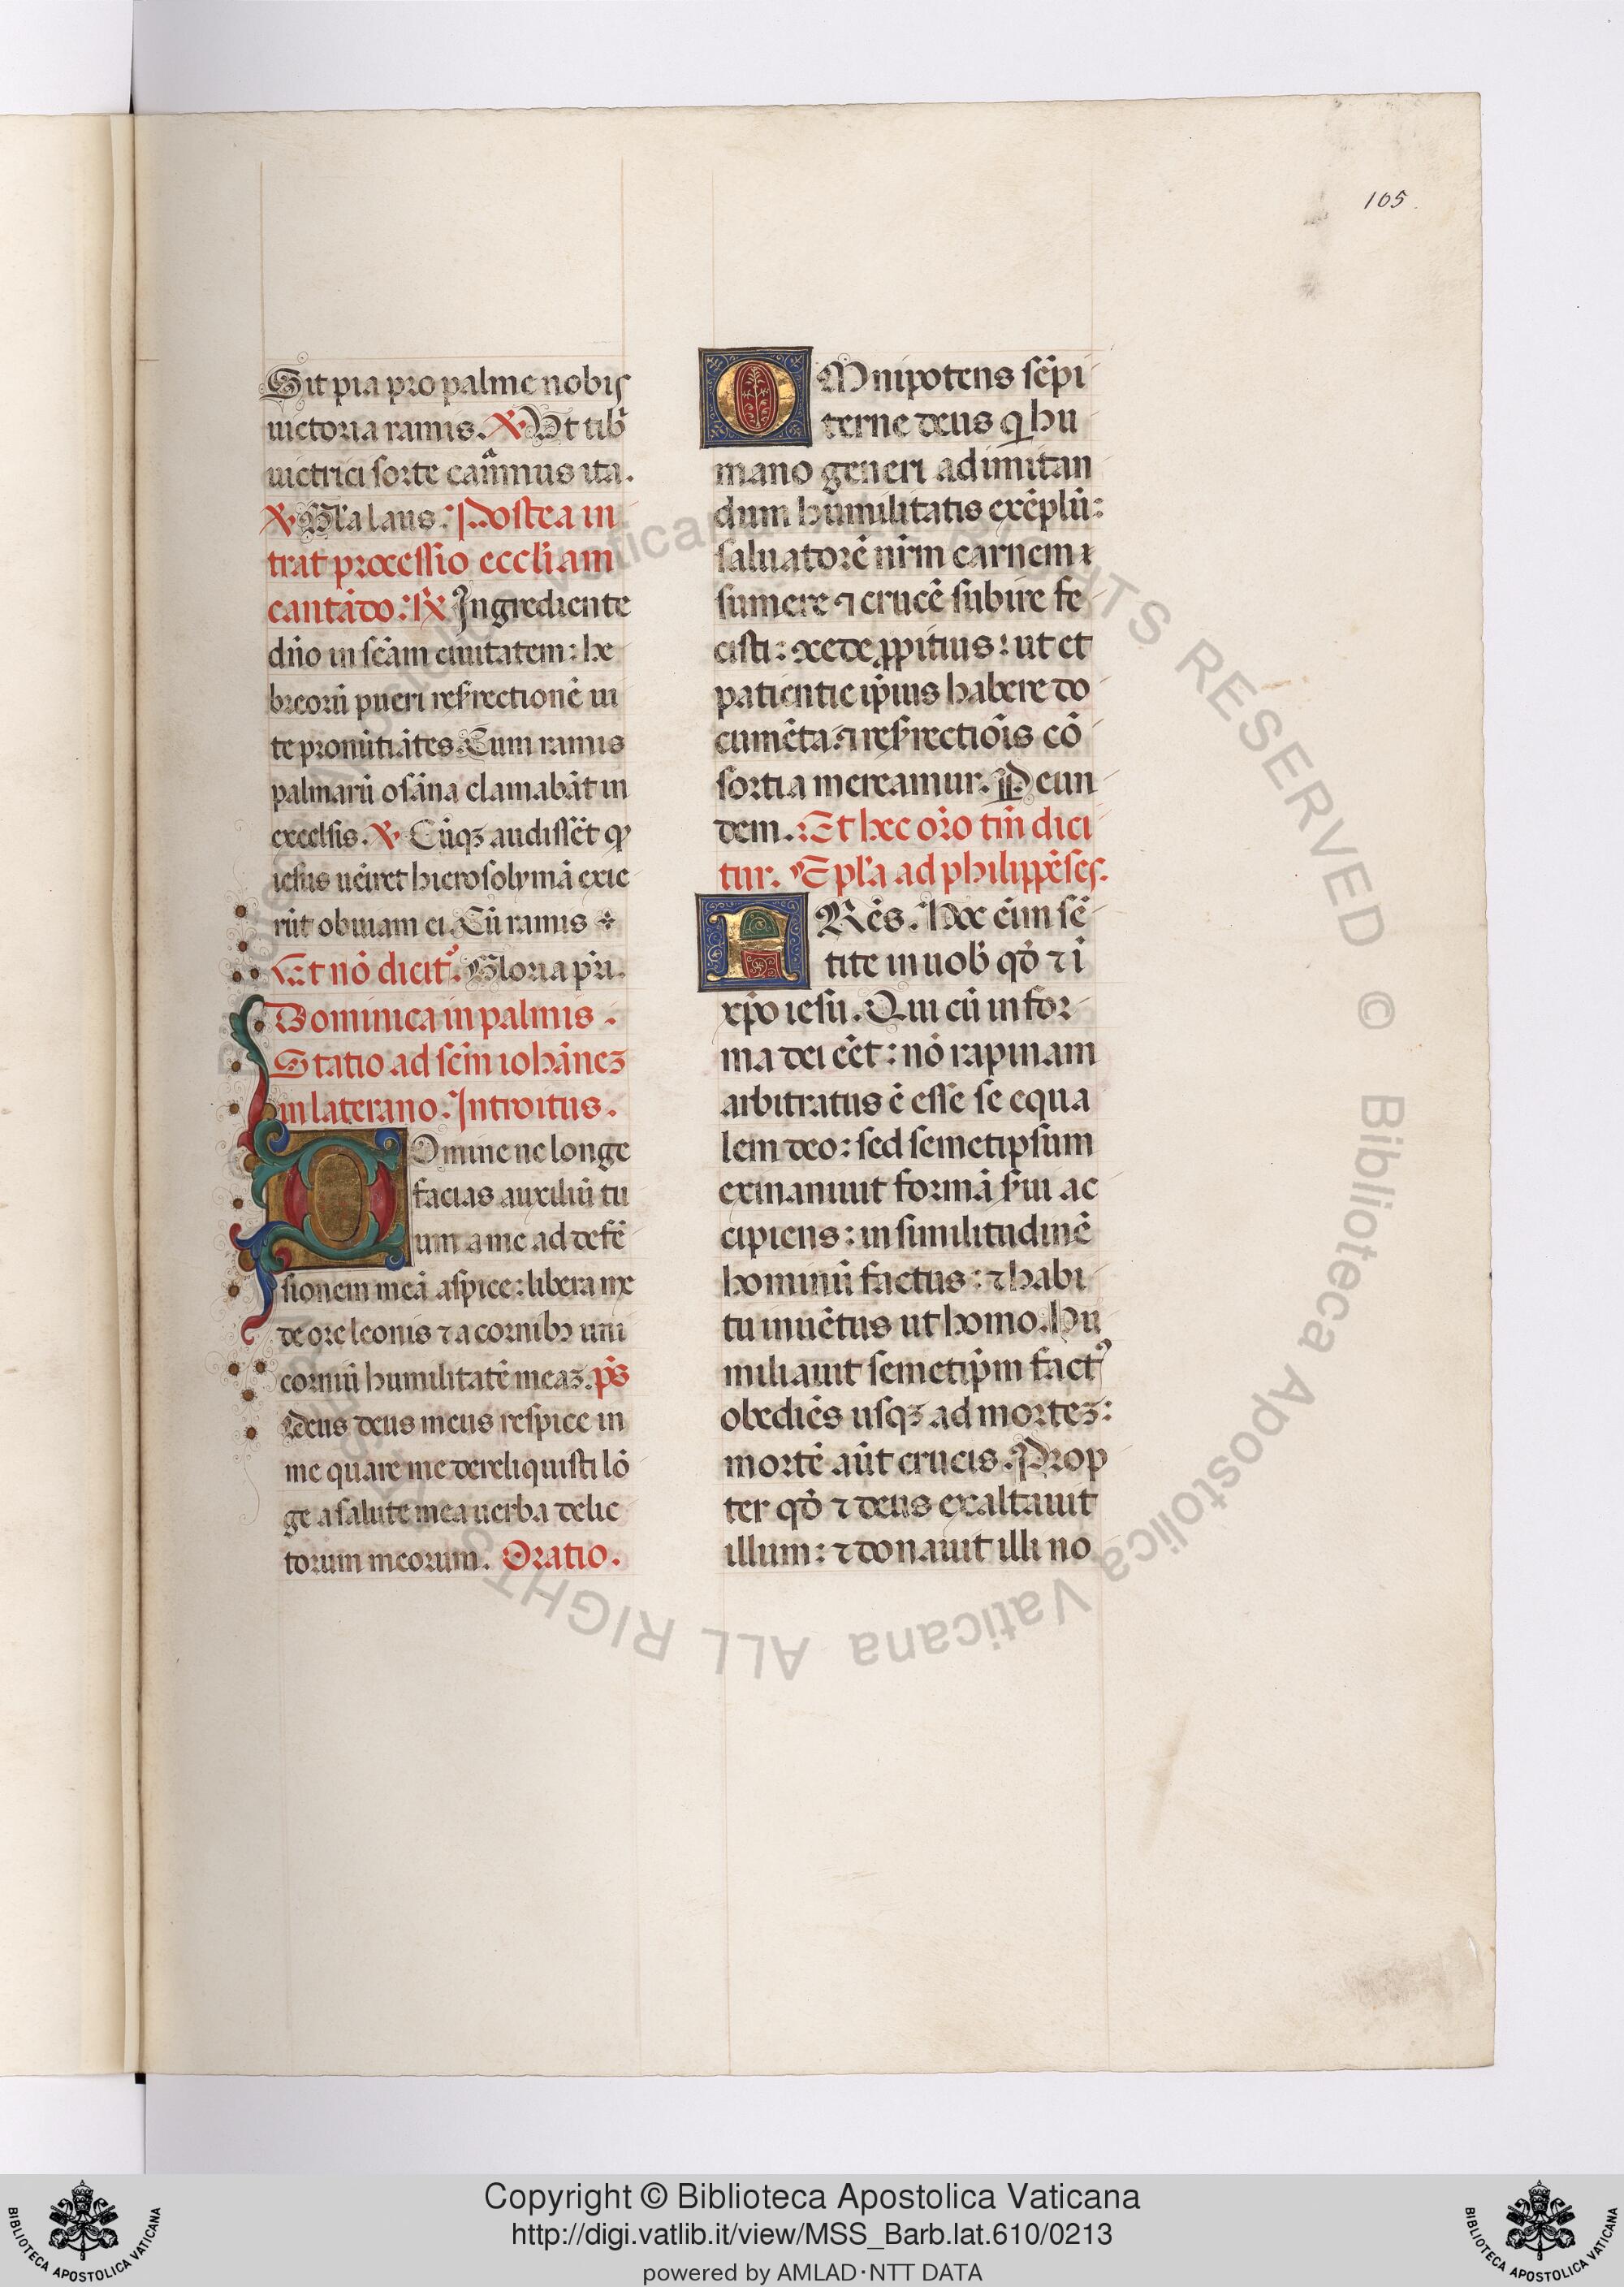 105
Sit pia pro palme nobis
uictoria ramis. ℣. Vt tibi
uictrici sorte canamus ita.
℣. Gl'a laus. Postea in
trat processio eccliam
cantādo. ℟. Ingrediente
dn̄o in sc̄am ciuitatem: he
breorū pueri resˀrectionē ui
te pronūtiātes. Cum ramis
palmarū osāna clamabāt in
excelsis. ℣. Cūqꝫ audissēt ꝙ
iesus uēiret hierosolymā exie
rūt obuiam ei. Cū ramis
Et nō dicitˀ. Gloria pr̄i.
Dominica in palmis.
Statio ad sc̄m iohāneꝫ
in laterano. Introitus.
DOmine ne longe
facias auxiliū tu
um a me ad defē
sionem meā aspice: libera me
de ore leonis ⁊ a cornibꝫ uni
corniū humilitatē meaꝫ. ps̄
Deus deus meus respice in
me quare me dereliquisti lō
ge a salute mea uerba delic
torum meorum. Oratio.
OMnipotens sēpi
terne deus q̇ hu
mano generi ad imitan
dum humilitatis exēplū:
saluatorē nr̄m carnem
sumere ⁊ crucē subire fe
cisti: ꝯcede ꝓpitius: ut et
patientie ip̄ius habere do
cumēta: ⁊ resˀrectiōis cō
sortia mereamur. Per eun
dem. Et hec or̄o tm̄ dici
tur. Epl'a ad philippēses.
FRēs. Hoc eīm sē
tite in uob̄ qd̄ ⁊ ī
xp̄o iesu. Qui cū in for
ma dei eēt: nō rapinam
arbitratus ē esse se equa
lem deo: sed semetipsum
exinaniuit formā sˀui ac
cipiens: in similitudinē
hominū factus: ⁊ habi
tu inuētus ut homo. Hu
miliauit semetip̄m factꝰ
obediēs usqꝫ ad morteꝫ:
mortē aūt crucis. Prop
ter qd̄ ⁊ deus exaltauit
illum: ⁊ donauit illi no
Biblioteca Apostolica Vaticana ALL RIGHTS RESERVED © Biblioteca Apostolica Vaticana ALL RIGHTS RESERVED ©
Copyright © Biblioteca Apostolica Vaticana
http://digi.vatlib.it/view/MSS_Barb.lat.610/0213
powered by AMLAD·NTT DATA
BIBLIOTECA APOSTOLICA VATICANA
BIBLIOTECA APOSTOLICA VATICANA